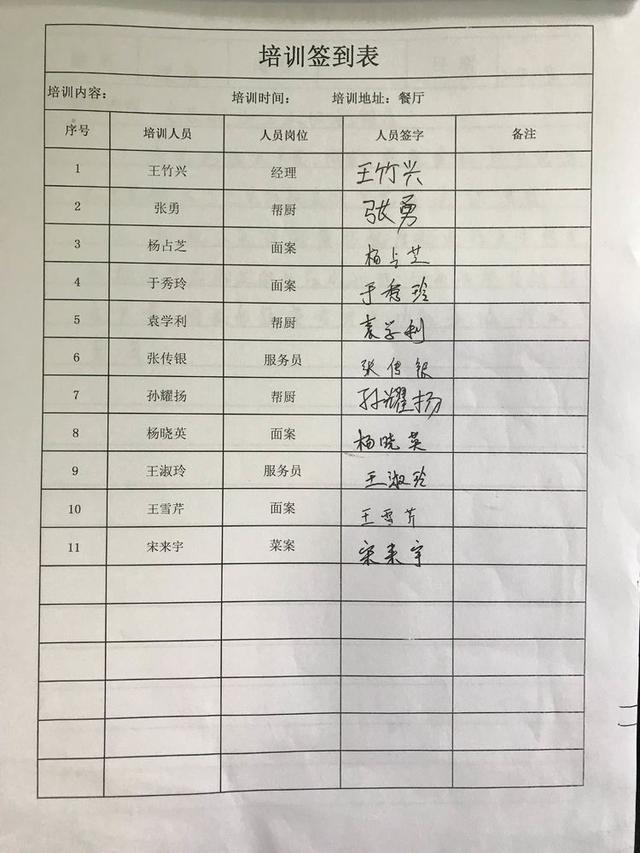 培训签到表
培训内容： 培训时间： 培训地址：餐厅
序号 培训人员 人员岗位 人员签字 备注
1 王竹兴 经理 王竹兴
2 张勇 帮厨 张勇
3 杨占芝 面案 杨占芝
4 于秀玲 面案 于秀玲
5 袁学利 帮厨 袁学利
6 张传银 服务员 张传银
7 孙耀扬 帮厨 孙耀扬
8 杨晓英 面案 杨晓英
9 王淑玲 服务员 王淑玲
10 王雪芹 面案 王雪芹
11 宋来宇 菜案 宋来宇